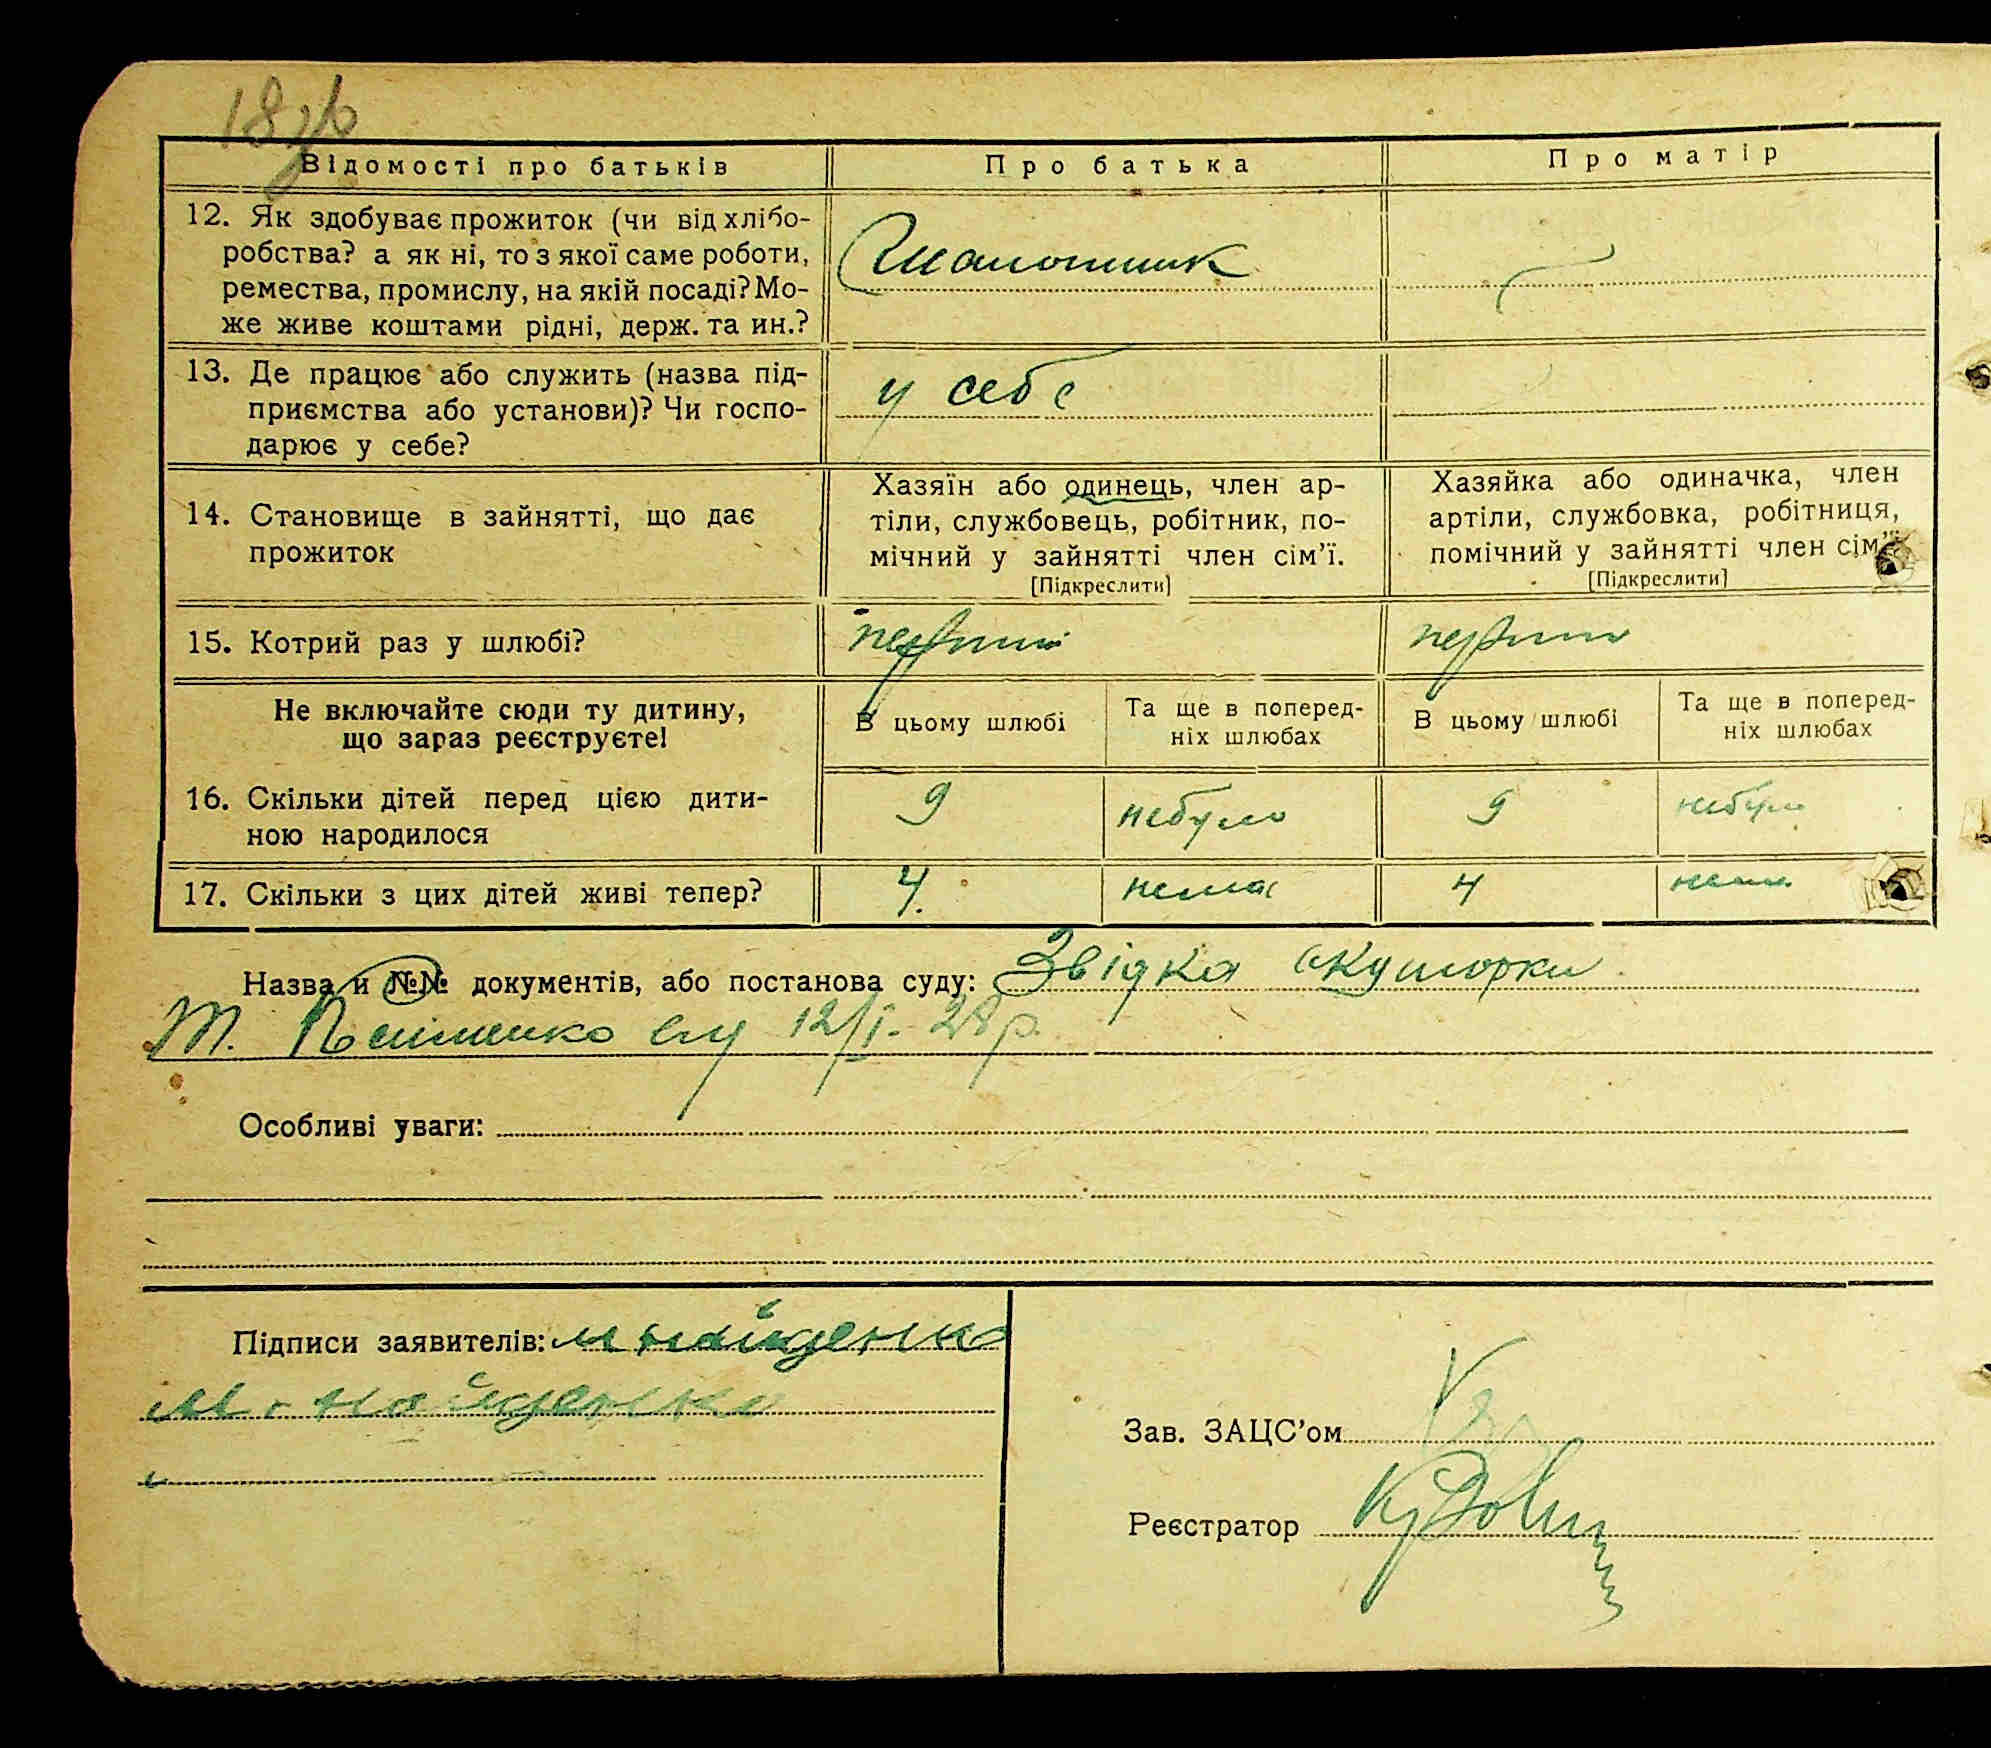 18 зв
Відомості про батьків
Про батька
Про матір
12. Як здобуває прожиток (чи від хлібо-
робства? а як ні, то з якої саме роботи,
ремества, промислу, на якій посаді? Мо-
же живе коштами рідні, держ. та ин.?
13. Де працює або служить (назва під-
приємства або установи)? Чи госпо-
дарює у себе?
у себе
14. Становище в зайнятті, що дає
прожиток
Хазяїн або одинець, член ар-
тіли, службовець, робітник, по-
мічний у зайнятті член сім'ї.
[Підкреслити]
Хазяйка або одиначка, член
артіли, службовка, робітниця,
помічний у зайнятті член сім'ї.
[Підкреслити]
15. Котрий раз у шлюбі?
перший
перший
Не включайте сюди ту дитину,
що зараз реєструєте!
В цьому шлюбі
Та ще в поперед-
ніх шлюбах
В цьому шлюбі
Та ще в поперед-
ніх шлюбах
16. Скільки дітей перед цією дити-
ною народилося
9
небуло
9
небуло
17. Скільки з цих дітей живі тепер?
4.
немає
4
немає
Назва и №№ документів, або постанова суду: Звідка окушорки
т. 12/I- 28 р.
Особливі уваги:
Підписи заявителів: м найденко
м. найденко
Зав. ЗАЦС'ом
Реєстратор